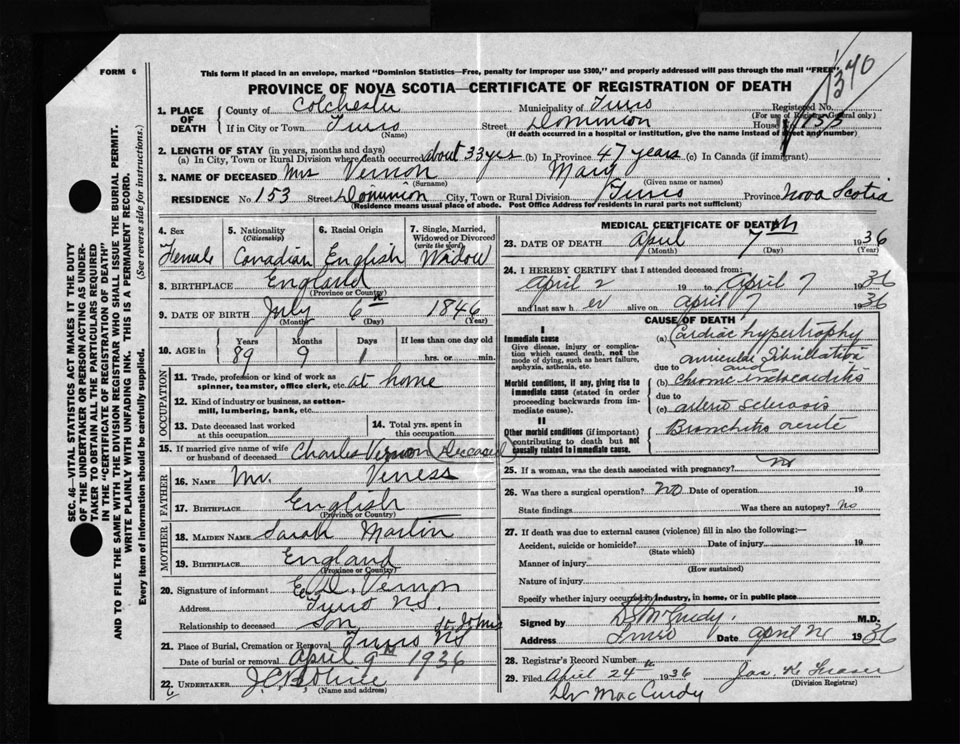 1340
FORM 6
This form if placed in an envelope, marked "Dominion Statistics—Free, penalty for improper use $300," and properly addressed will pass through the mail "FREE".
PROVINCE OF NOVA SCOTIA—CERTIFICATE OF REGISTRATION OF DEATH
1. PLACE OF DEATH
County of Colchester Municipality of Truro Registered No.
(For use of Registrar General only)
If in City or Town Truro Street Dominion House 153
(Name) (If death occurred in a hospital or institution, give the name instead of street and number)
2. LENGTH OF STAY (in years, months and days)
(a) In City, Town or Rural Division where death occurred about 33 yrs (b) In Province 47 years (c) In Canada (if immigrant)
3. NAME OF DECEASED Mrs Vernon Mary
(Surname) (Given name or names)
RESIDENCE No 153 Street Dominion City, Town or Rural Division Truro Province Nova Scotia
(Residence means usual place of abode. Post Office Address for residents in rural parts not sufficient)
4. Sex 5. Nationality (Citizenship) 6. Racial Origin 7. Single, Married, Widowed or Divorced (write the word)
Female Canadian English Widow
8. BIRTHPLACE England
(Province or Country)
9. DATE OF BIRTH July 6th 1846
(Month) (Day) (Year)
10. AGE in Years Months Days If less than one day old
89 9 1 hrs. or min.
OCCUPATION
11. Trade, profession or kind of work as spinner, teamster, office clerk, etc. at home
12. Kind of industry or business, as cotton-mill, lumbering, bank, etc.
13. Date deceased last worked at this occupation
14. Total yrs. spent in this occupation
15. If married give name of wife or husband of deceased Charles Vernon Deceased
FATHER
16. NAME Mr. Viness
17. BIRTHPLACE English
(Province or Country)
MOTHER
18. MAIDEN NAME Sarah Martin
19. BIRTHPLACE England
(Province or Country)
20. Signature of informant E. D. Vernon
Address Truro N.S.
Relationship to deceased Son
21. Place of Burial, Cremation or Removal Truro NS
Date of burial or removal April 9th 1936
22. UNDERTAKER
(Name and address)
MEDICAL CERTIFICATE OF DEATH
23. DATE OF DEATH April 7th 1936
(Month) (Day) (Year)
24. I HEREBY CERTIFY that I attended deceased from:
April 2 19 to April 7 1936
and last saw h er alive on April 7 1936
CAUSE OF DEATH
I
Immediate cause
Give disease, injury or complication which caused death, not the mode of dying, such as heart failure, asphyxia, asthenia, etc.
(a) Cardiac hypertrophy
auricular fibrillation
due to and
Morbid conditions, if any, giving rise to immediate cause (stated in order proceeding backwards from immediate cause).
(b) chronic endocarditis
due to
(c) arterio sclerosis
II
Other morbid conditions (if important) contributing to death but not causally related to immediate cause.
Bronchitis acute
25. If a woman, was the death associated with pregnancy? no
26. Was there a surgical operation? No Date of operation 19
State findings Was there an autopsy? No
27. If death was due to external causes (violence) fill in also the following:—
Accident, suicide or homicide? Date of injury 19
(State which)
Manner of injury
(How sustained)
Nature of injury
Specify whether injury occurred in industry, in home, or in public place
Signed by M.D.
Address Truro Date April 24 1936
28. Registrar's Record Number
29. Filed April 24th 1936 Jas. K. Fraser
(Division Registrar)
Dr MacCurdy
SEC. 46—VITAL STATISTICS ACT MAKES IT THE DUTY
OF THE UNDERTAKER OR PERSON ACTING AS UNDER-
TAKER TO OBTAIN ALL THE PARTICULARS REQUIRED
IN THE "CERTIFICATE OF REGISTRATION OF DEATH"
AND TO FILE THE SAME WITH THE DIVISION REGISTRAR WHO SHALL ISSUE THE BURIAL PERMIT.
WRITE PLAINLY WITH UNFADING INK. THIS IS A PERMANENT RECORD.
Every item of information should be carefully supplied. (See reverse side for instructions.)